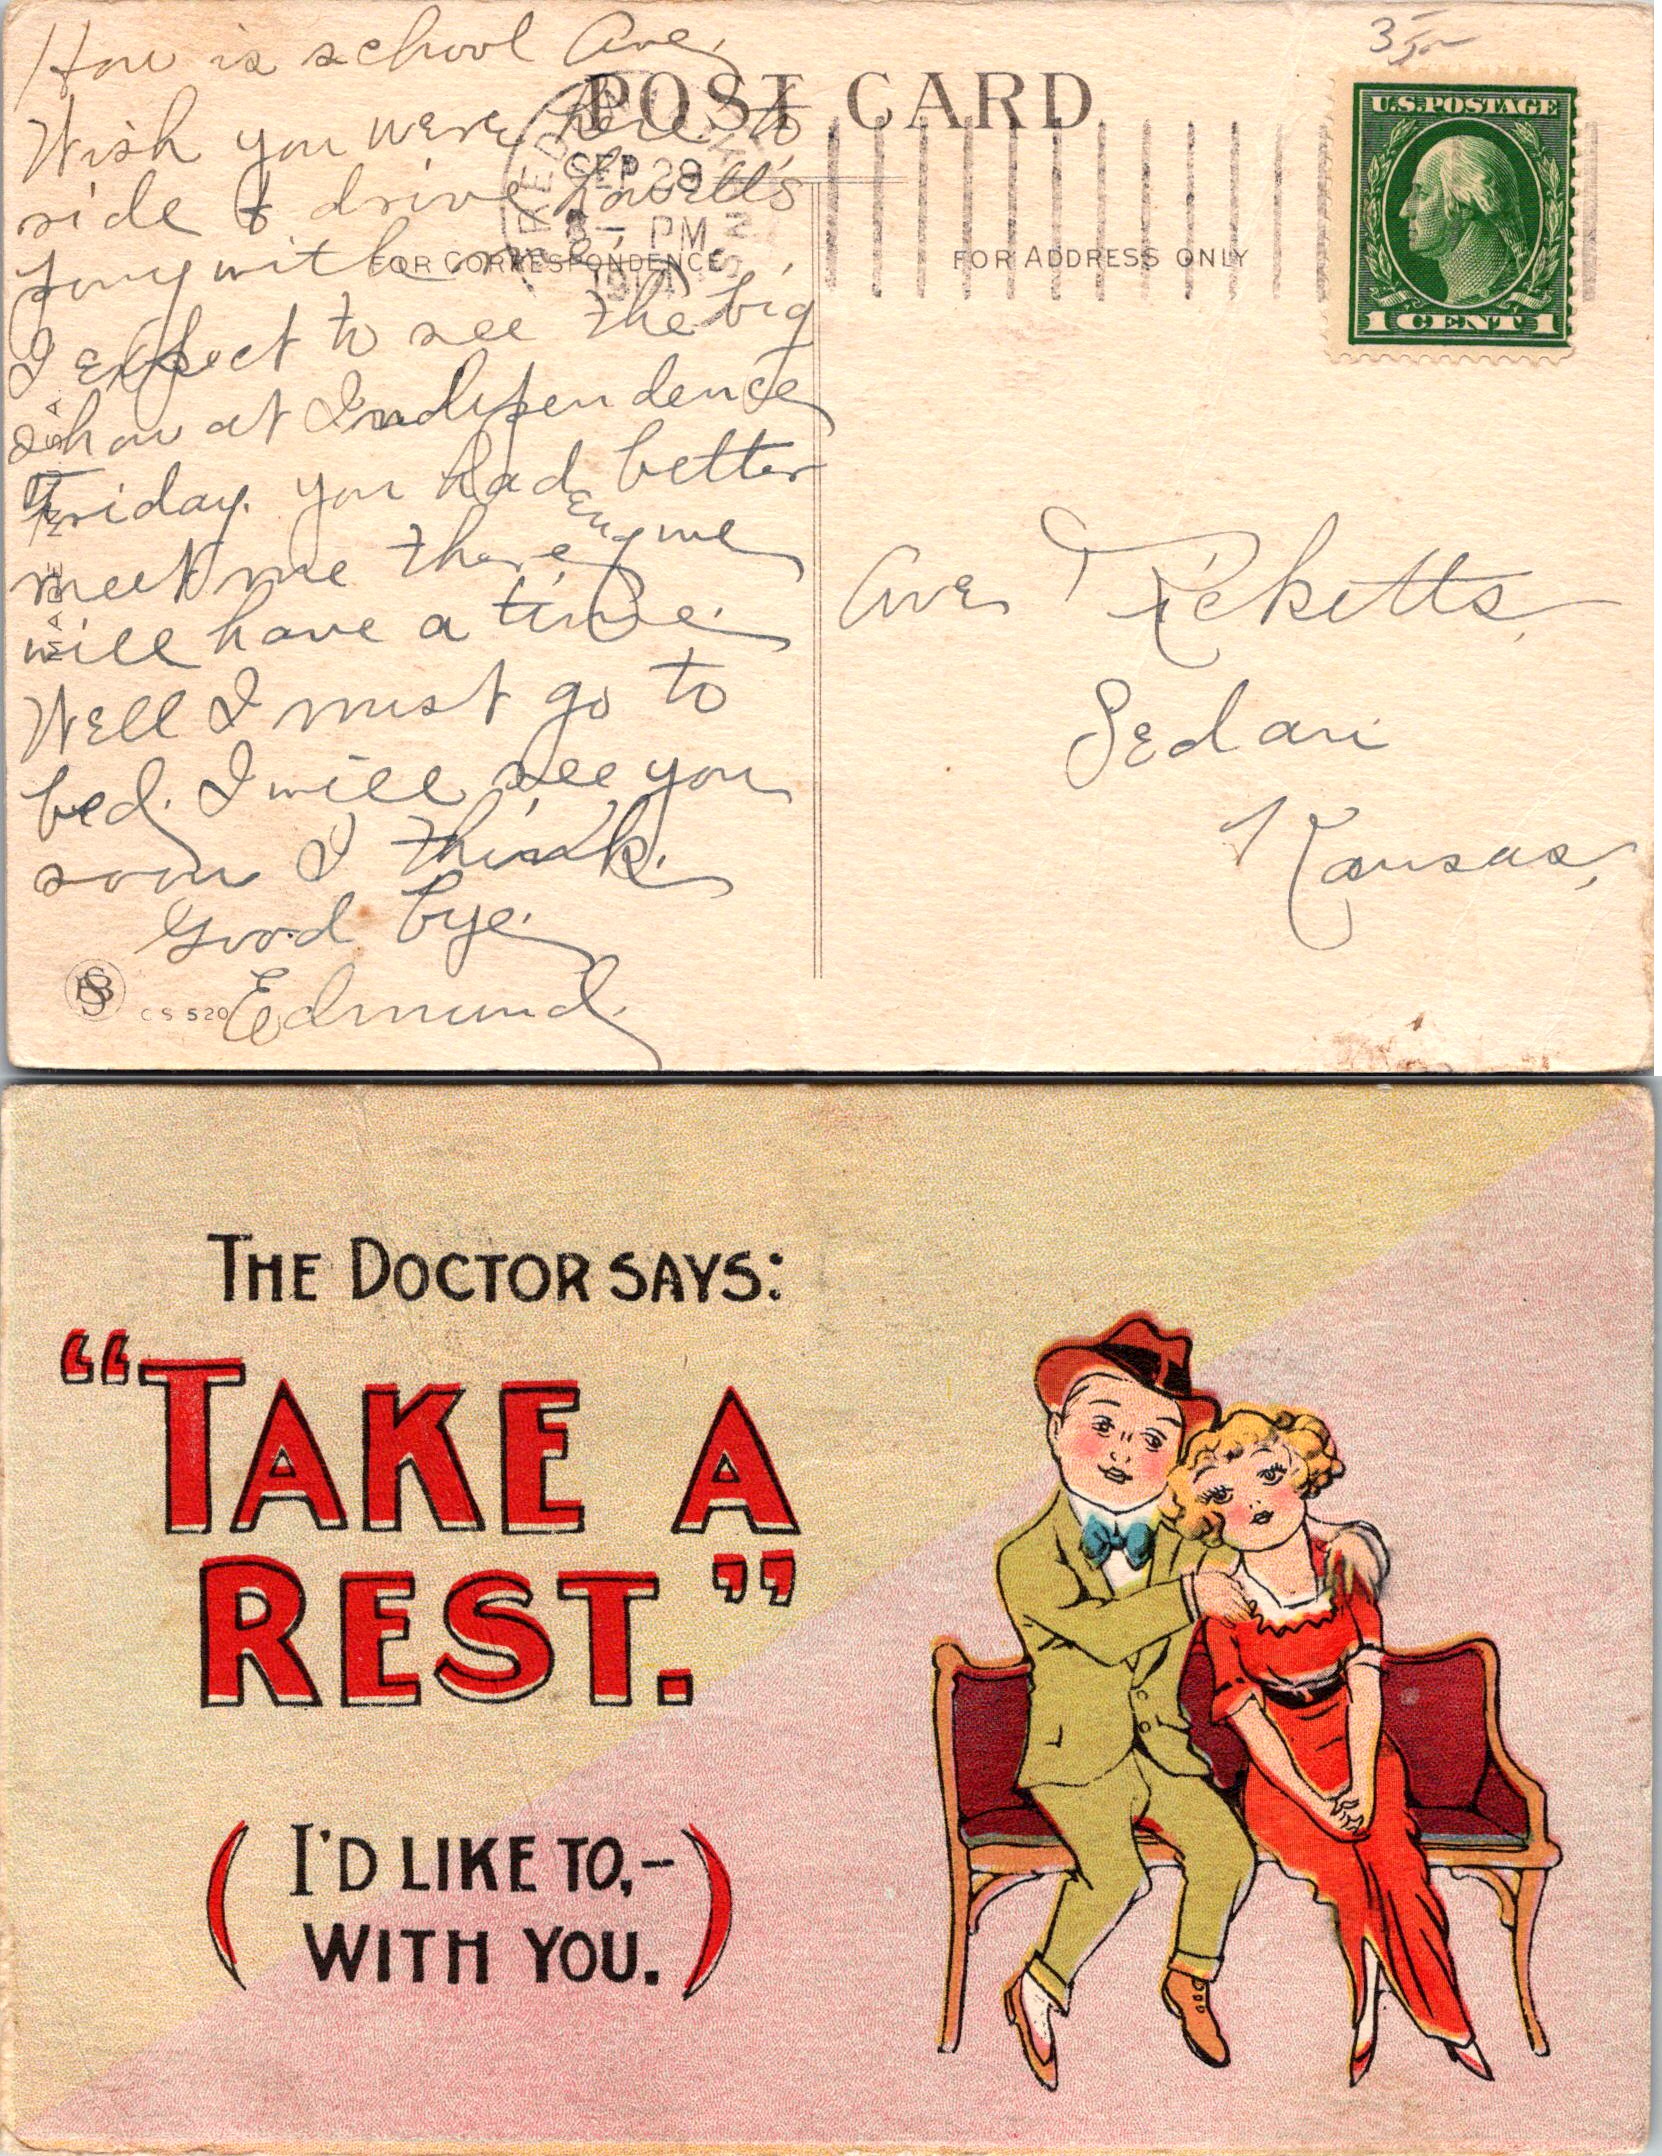 How is school Ave,
Wish you were here to
ride & drive Lowell's
pony with me.
I expect to see the big
show at Independence
Friday. you had better
meet me there Eug me
will have a time.
Well I must go to
bed. I will see you
soon I think.
Good bye.
Edmund.
POST CARD
FOR CORRESPONDENCE
FOR ADDRESS ONLY
SEP 28
8 - PM
MADE IN U.S.A.
CS 520
U.S. POSTAGE
1 CENT 1
Ave Ricketts,
Sedan
Kansas,
THE DOCTOR SAYS:
"TAKE A
REST."
(I'D LIKE TO,-
WITH YOU.)